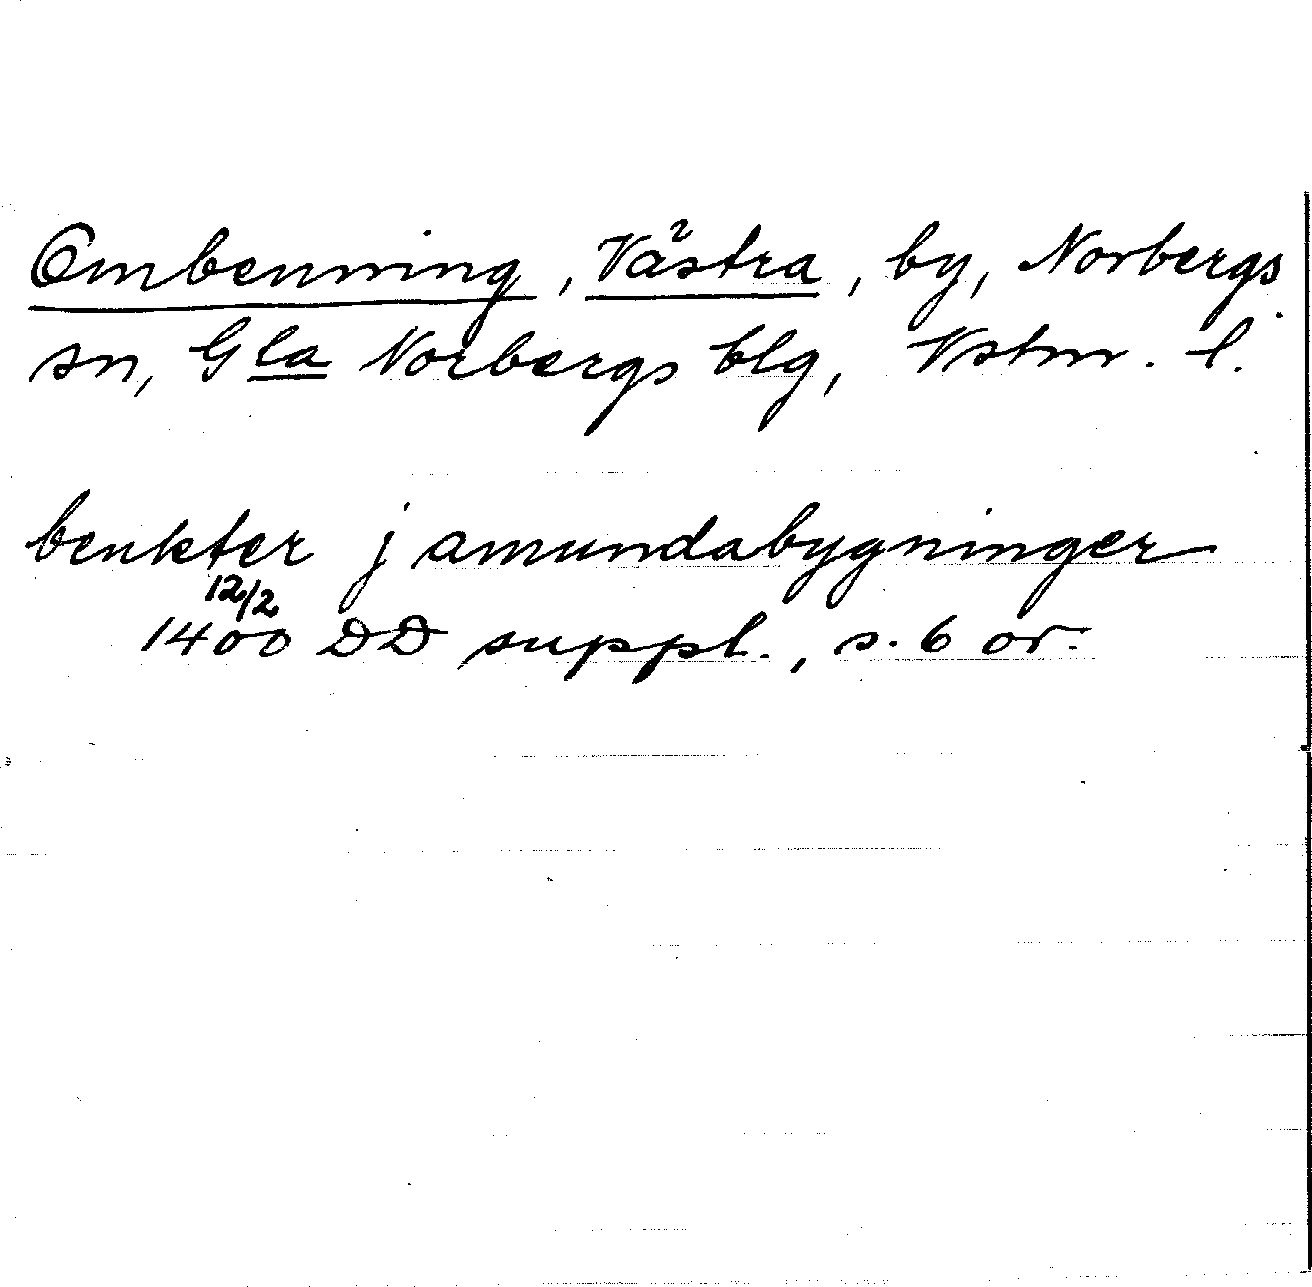 Ombenning, Västra, by, Norbergs
sn, Gla Norbergs blg, Vstm. l.
benkter j amundabygninger
12/2
1400 DD suppl., s. 6 or.